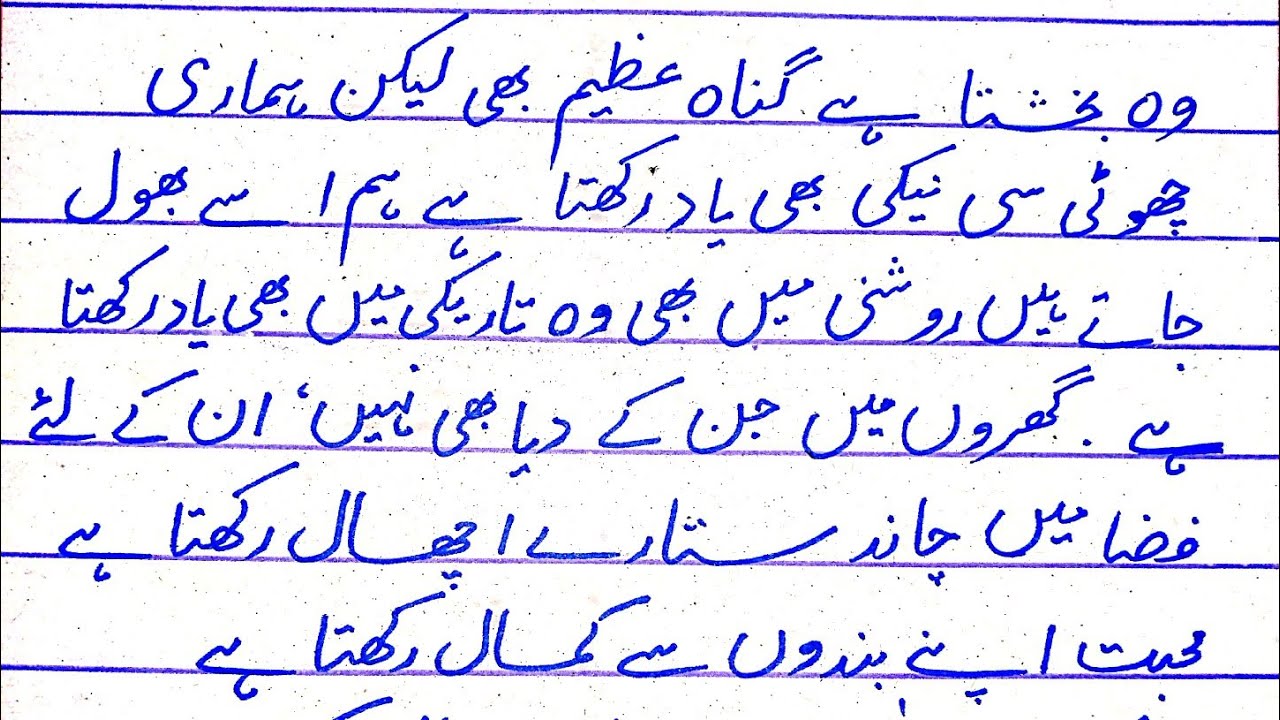 وہ بخشتا ہے گناہ عظیم بھی لیکن ہماری
چھوٹی سی نیکی بھی یاد رکھتا ہے ہم اسے بھول
جاتے ہیں روشنی میں بھی وہ تاریکی میں بھی یاد رکھتا
ہے ۔ گھروں میں جن کے دیا بھی نہیں، ان کے لئے
فضا میں چاند ستارے اچھال رکھتا ہے
محبت اپنے بندوں سے کمال رکھتا ہے